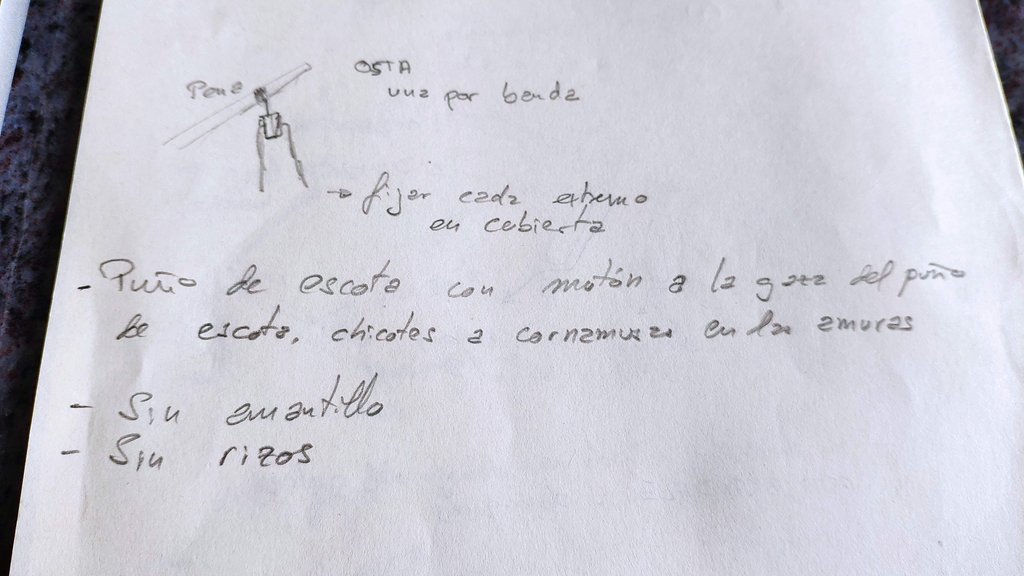 OSTA
Pena
una por banda
→ fijar cada extremo
en cubierta
- Puño de escota con motón a la gaza del puño
de escota, chicotes a cornamusas en las amuras
- Sin amantillo
- Sin rizos